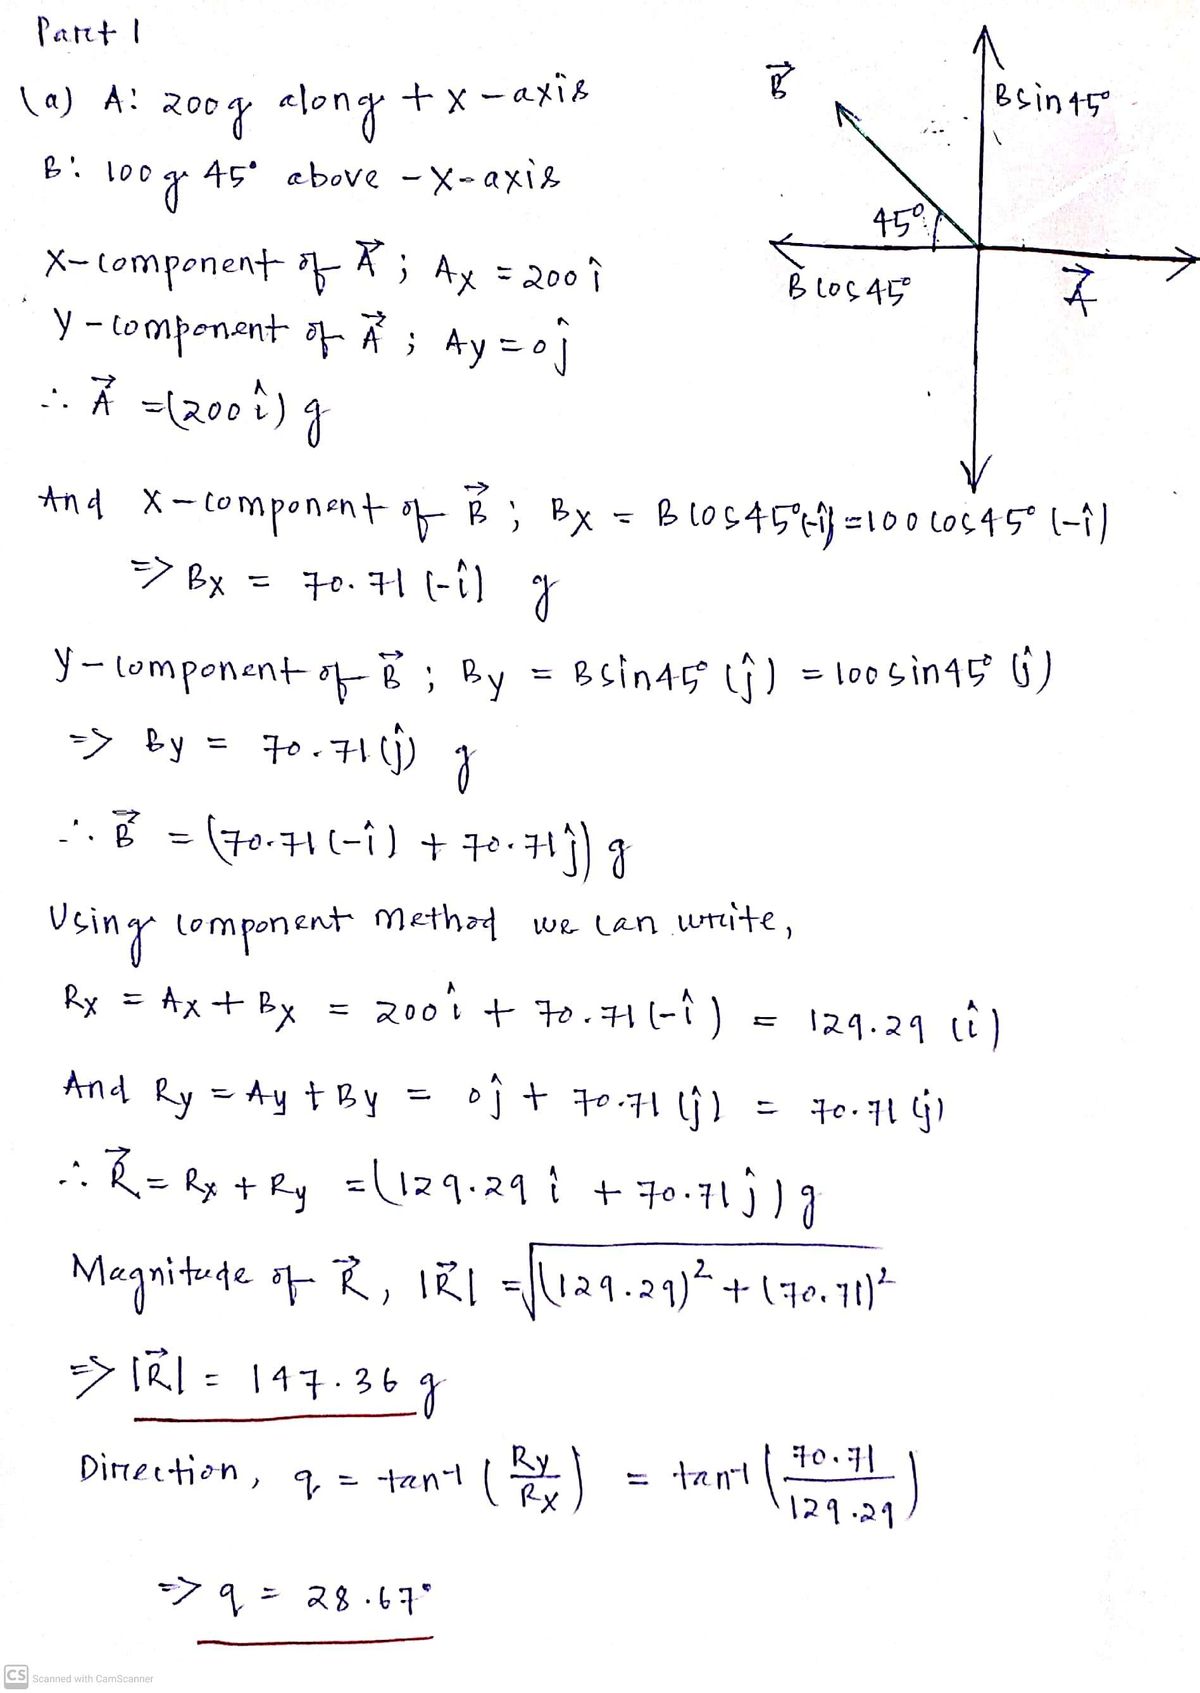 Part 1
(a) A: 200g along +x-axis
B: 100g 45° above -x-axis
B⃗
B sin 45°
45°
B cos 45°
A⃗
X-component of A⃗ ; Ax = 200 î
Y-component of A⃗ ; Ay = 0 ĵ
∴ A⃗ = (200 î) g
And X-component of B⃗ ; Bx = B cos 45° (-î) = 100 cos 45° (-î)
=> Bx = 70.71 (-î) g
Y-component of B⃗ ; By = B sin 45° (ĵ) = 100 sin 45° (ĵ)
=> By = 70.71 (ĵ) g
∴ B⃗ = (70.71 (-î) + 70.71 ĵ) g
Using component method we can write,
Rx = Ax + Bx = 200 î + 70.71 (-î) = 129.29 (î)
And Ry = Ay + By = 0 ĵ + 70.71 (ĵ) = 70.71 (ĵ)
∴ R⃗ = Rx + Ry = (129.29 î + 70.71 ĵ) g
Magnitude of R⃗, |R⃗| = √((129.29)² + (70.71)²
=> |R⃗| = 147.36 g
Direction, q = tan⁻¹ (Ry/Rx) = tan⁻¹ (70.71/129.29)
=> q = 28.67°
CS Scanned with CamScanner